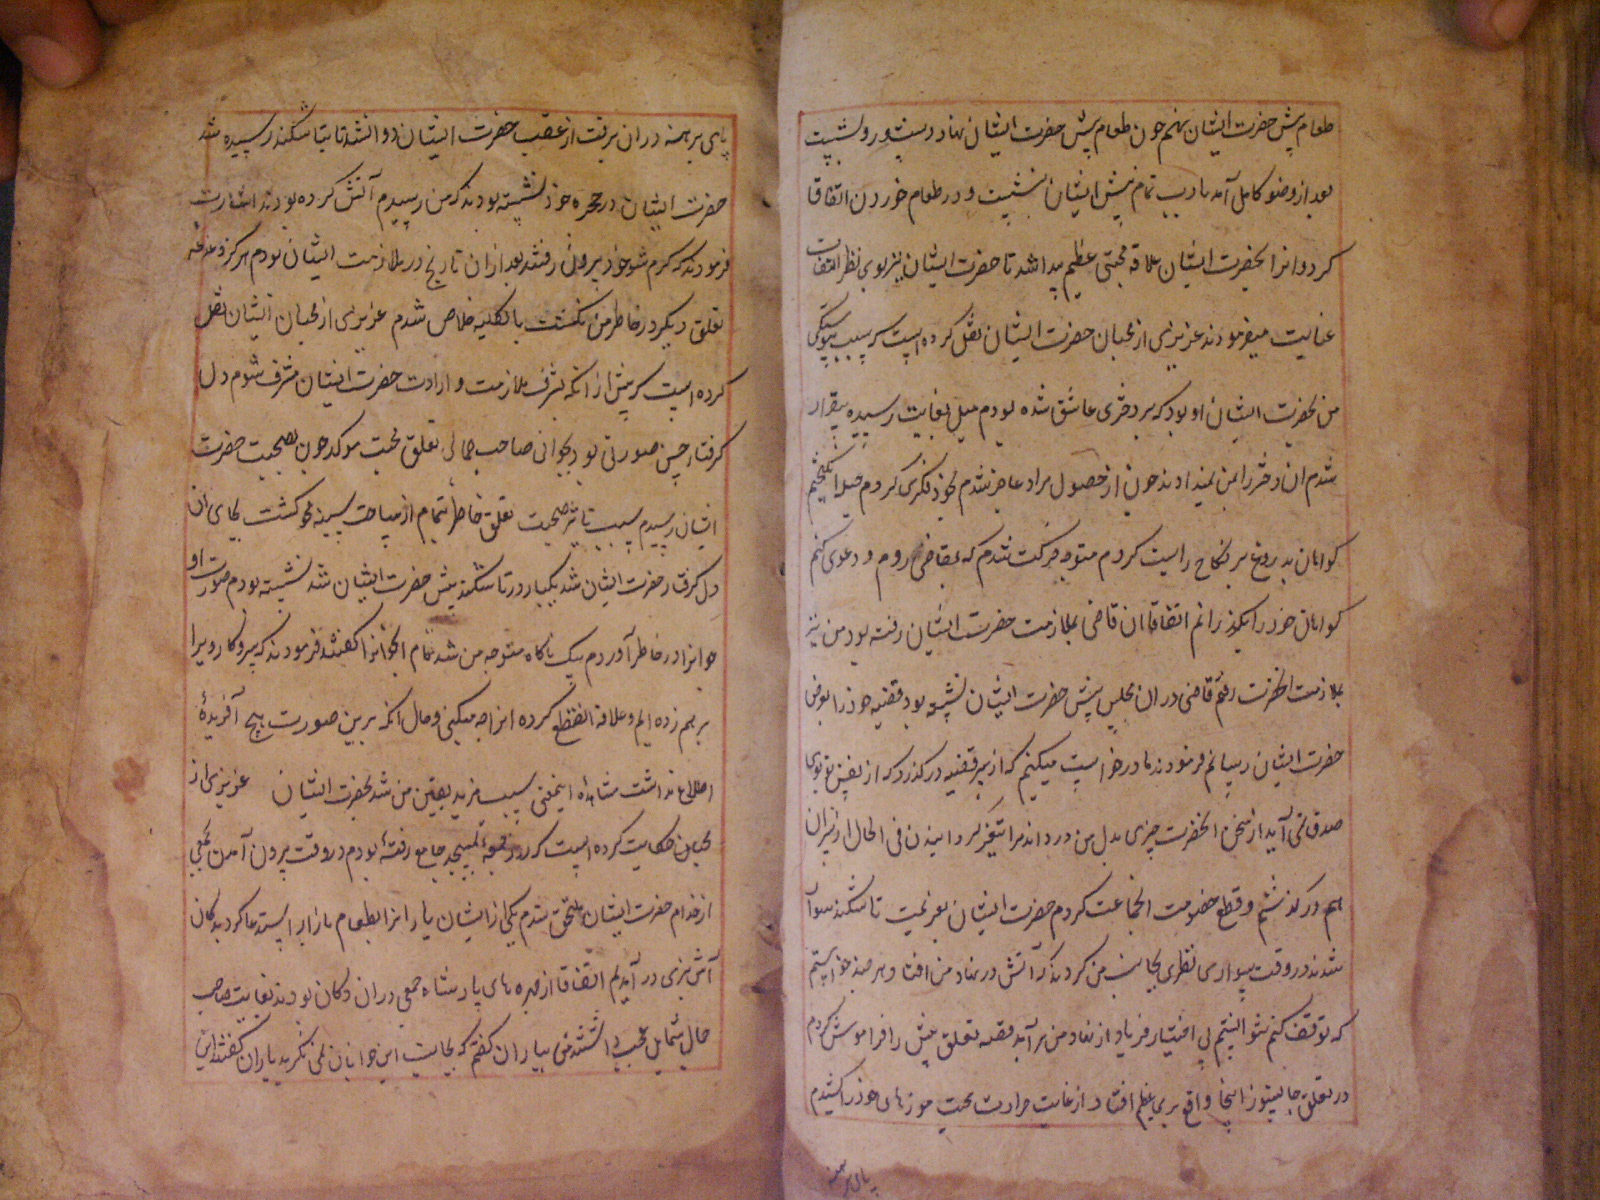 طعام پیش حضرت ایشان نهم چون طعام پیش حضرت ایشان نهاد دست و رو بشست
بعد از وضو کامل آمد بادب تمام پیش ایشان بنشست و در طعام خوردن اتفاقا
کرد و انرا بحضرت ایشان علاقه محبتی عظیم پیدا شد تا حضرت ایشان نیز بوی نظر التفات
عنایت میفرمودند عزیزی از محبان حضرت ایشان نقل کرده است که سبب پیوستگی
من بحضرت ایشان او بود که بر دختری عاشق شده بودم میل بغایت رسیده بیقرار
شدم ان دختر را بمن نمیدادند چون از حصول مراد عاجز شدم بخود فکری کردم حیله انگیختم
کواهان بدروغ بر نکاح راست کردم متوجه فرکت شدم که بقاضی روم و دعوی کنم
کواهان خود را بگذرانم اتفاقا ان قاضی بملازمت حضرت ایشان رفته بود من نیز
بملازمت انحضرت رفتم قاضی در ان مجلس پیش حضرت ایشان نشسته بود قضیه خود را بعرض
حضرت ایشان رسانم فرمودند ما درخواست میکنیم که از سر قضیه درکذرد که از نفس تو بوی
صدقا می آید از سخن انحضرت چیزی بدل من درآمد مرا متغیر گردانید فی الحال از سر ان
هم درکذشتم و قطع خصومت انجماعت کردم حضرت ایشان بعزیمت تاشکند سوار
شدند در وقت سواری نظری بجانب من کردند که آتش در نهاد من افتاد هر چند خواستم
که توقف کنم نتوانستم بی اختیار فریاد از نهاد من برآمد قصه تعلق پیش را فراموش کردم
در تعلق واقع بری عظیم افتاد از غایت حرارت محبت موزهای خود را کشیدم
پای برهنه
پای برهنه در ان برف از عقب حضرت ایشان دوان شدم تا بتاشکند رسیده شد
حضرت ایشان در حجره خود نشسته بودند که من رسیدم آتش کرده بودند اشارت
فرمودند که گرم شو خود بیرون رفتند بعد ازان تاریخ در ملازمت ایشان بودم هرگز دغدغه
تعلق دیگر در خاطر من نگشت بالکلیه خلاص شدم عزیزی از محبان ایشان نقل
کرده است که پیش از انکه بشرف ملازمت و ارادت حضرت ایشان مشرف شوم دل
گرفتار حسن صورتی بود بجوانی صاحب جمالی تعلق محبت موکد چون بصحبت حضرت
ایشان رسیدم بسبب تاثیر صحبت تعلق خاطر بتمام از ساحت سینه محو گشت بجای ان
دل گرفتار حضرت ایشان شد یکبار در تاشکند پیش حضرت ایشان نشسته بودم صورت او
جوانرا در خاطر آوردم یک ناکاه متوجه من شد نام انجوانرا گفتند فرمودند که سر و کار ویرا
برهم زده ایم و علاقه انقطع کرده انرا چه میکنی و حال انکه برین صورت هیچ آفریدهٔ
اطلاع نداشت مشاهده اینمعنی سبب مزید یقین من شد بحضرت ایشان عزیزی از
محبان حکایت کرده است که روز جمعه بمسجد جامع رفته بودم در وقت بیرون آمدن بجمعی
از خدام حضرت ایشان ملحق شدم یکی از ایشان یارانرا بطعام بازار استدعا کرد بدکان
آش پزی در آمدیم اتفاقا از چهره های پادشاه جمعی دران دکان بودند بغایت صاحب
جمال شمایل عجب داشتند من بیاران گفتم که بجانب این جوانان نمی نگرید یاران گفتند این